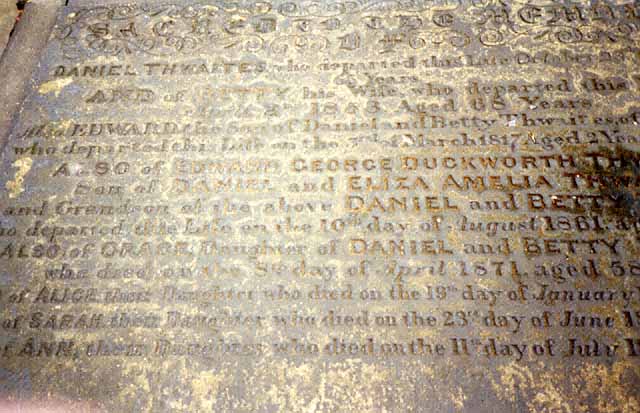 SACRED TO THE MEMOR
OF
DANIEL THWAITES, who departed this Life October
Years.
AND of BETTY his Wife, who departed this
1853 Aged 68 Years
Also EDWARD, the Son of Daniel and Betty Thwaites,
who departed this Life on the 3rd of March 1817 Aged 2 Yea
ALSO of EDWARD GEORGE DUCKWORTH THW
Son of DANIEL and ELIZA AMELIA THW
and Grandson of the above DANIEL and BETTY
ho departed this Life on the 10th day of August 1861, a
ALSO, of GRACE, Daughter of DANIEL and BETTY
who died on the 8th day of April 1871, aged 5
of ALICE, their Daughter who died on the 19th day of January
of SARAH, their Daughter who died on the 23rd day of June 1
of ANN, their Daughter who died on the 11th day of July 1